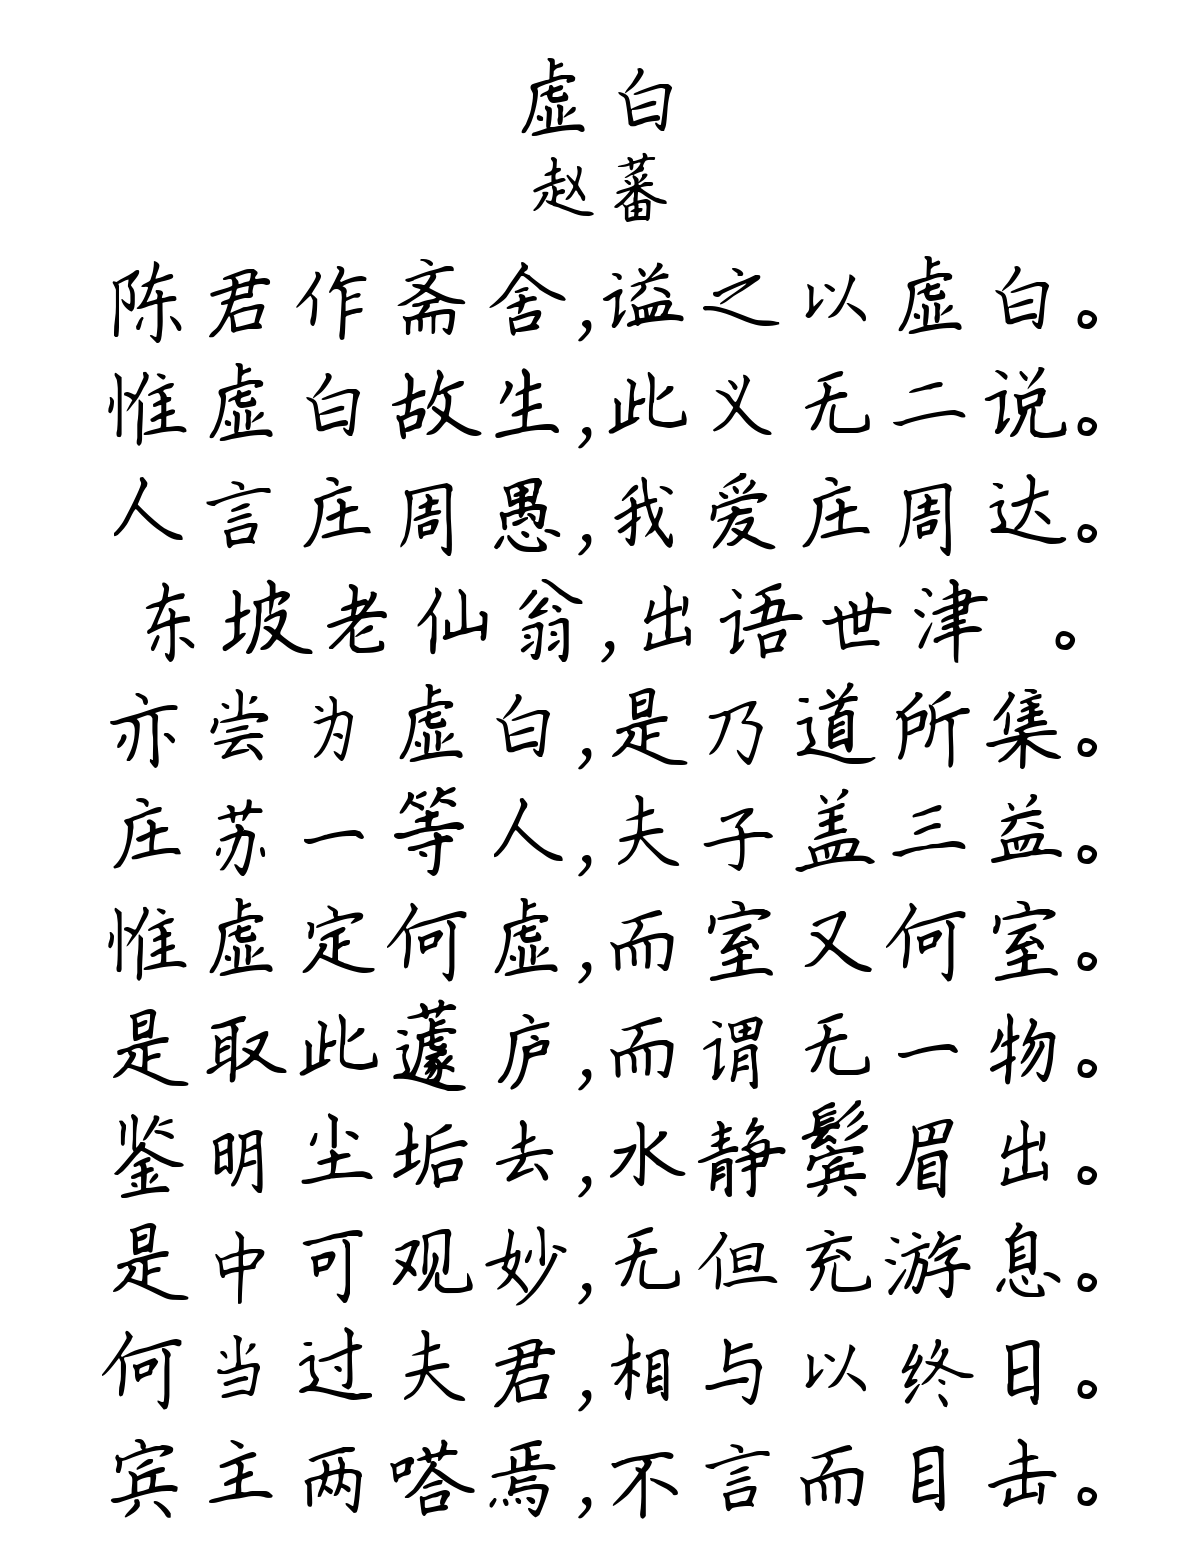 虚白
赵蕃
陈君作斋舍,谥之以虚白。
惟虚白故生,此义无二说。
人言庄周愚,我爱庄周达。
东坡老仙翁,出语世津 。
亦尝为虚白,是乃道所集。
庄苏一等人,夫子盖三益。
惟虚定何虚,而室又何室。
是取此蘧庐,而谓无一物。
鉴明尘垢去,水静鬓眉出。
是中可观妙,无但充游息。
何当过夫君,相与以终日。
宾主两嗒焉,不言而目击。